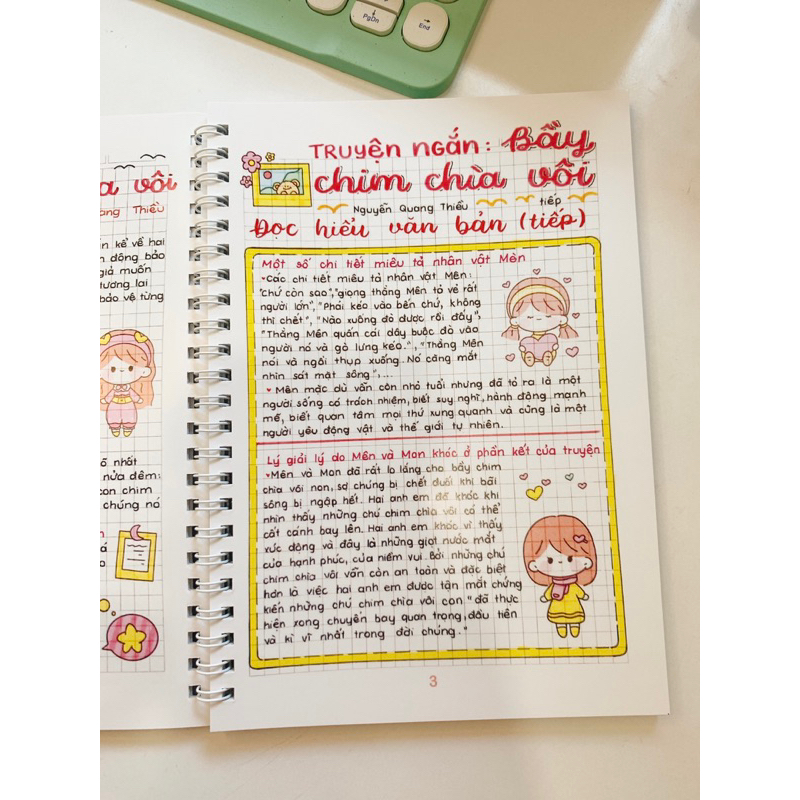 PgDn
End
a vôi
ang Thiều
n kể về hai
n động bảo
giả muốn
tương lai
bảo vệ từng
ố nhất
nửa đêm:
con chim
chúng nó
á
o
Truyện ngắn: Bầy
chim chìa vôi
Nguyễn Quang Thiều
tiếp
Đọc hiểu văn bản (tiếp)
Một số chi tiết miêu tả nhân vật Mên
Các chi tiết miêu tả nhân vật Mên:
"Chứ còn sao", "giọng thằng Mên tỏ vẻ rất
người lớn", "Phải kéo vào bến chứ, không
thì chết", "Nào xuống đò được rồi đấy",
"Thằng Mên quấn cái dây buộc đò vào
người nó và gò lưng kéo.", "Thằng Mên
nói và ngồi thụp xuống. Nó căng mắt
nhìn sát mặt sông",...
Mên mặc dù vẫn còn nhỏ tuổi nhưng đã tỏ ra là một
người sống có trách nhiệm, biết suy nghĩ, hành động mạnh
mẽ, biết quan tâm mọi thứ xung quanh và cũng là một
người yêu động vật và thế giới tự nhiên.
Lý giải lý do Mên và Mon khóc ở phần kết của truyện
Mên và Mon đã rất lo lắng cho bầy chim
chìa vôi non, sợ chúng bị chết đuối khi bãi
sông bị ngập hết. Hai anh em đã khóc khi
nhìn thấy những chú chim chìa vôi có thể
cất cánh bay lên. Hai anh em khóc vì thấy
xúc động và đây là những giọt nước mắt
của hạnh phúc, của niềm vui. Bởi những chú
chim chìa vôi vẫn còn an toàn và đặc biệt
hơn là việc hai anh em được tận mắt chứng
kiến những chú chim chìa vôi con "đã thực
hiện xong chuyến bay quan trọng, đầu tiên
và kì vĩ nhất trong đời chúng."
3